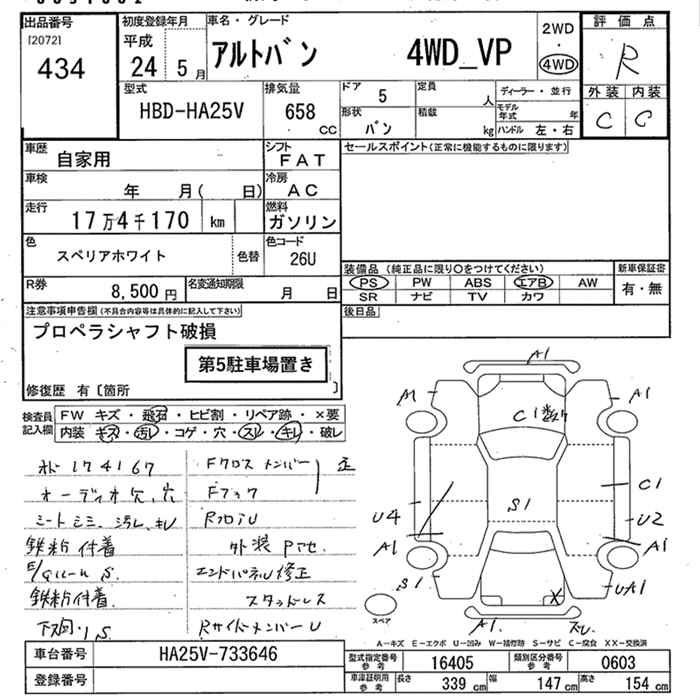 出品番号
[2072]
434
初度登録年月
平成
24 5月
車名・グレード
アルトバン 4WD_VP
2WD
4WD
評価点
R
外装 内装
C C
型式
HBD-HA25V
排気量
658
CC
ドア
5
形状
バン
定員
人
積載
kg
ディーラー・並行
モデル年式 年
ハンドル 左・右
車歴
自家用
シフト
FAT
車検
年 月( 日)
冷房
AC
走行
17万4千170 km
燃料
ガソリン
色
スペリアホワイト
色替
色コード
26U
R券
8,500円
名変通知期限
月 日
セールスポイント(正常に機能するものに限ります)
装備品 (純正品に限り〇をつけてください)
新車保証書
PS PW ABS エアB AW
有・無
SR ナビ TV カワ
後日品
注意事項申告欄(不具合内容等は具体的に記入して下さい)
プロペラシャフト破損
第5駐車場置き
修復歴 有〔箇所 〕
検査員記入欄
FW キズ・飛石・ヒビ割・リペア跡・×要
内装 キズ・汚レ・コゲ・穴・スレ・キレ・破レ
174167
Fクロスメンバー 正
オーディオ穴、穴
Fフック
シートシミ、汚レ、キレ
RフロアU
鉄粉付着
外装Pサビ
エンドパネル修正
鉄粉付着
スタッドレス
下回リS
RサイドメンバーU
A1
A1
A1
C1
S1
C1
U4
U2
A1
A1
S1
UA1
X
A1
スペア
A-キズ E-エクボ U-凹み W-補修跡 S-サビ C-腐食 XX-交換済
車台番号
HA25V-733646
登録番号
型式指定番号 参考
16405
類別区分番号 参考
0603
車庫証明用 参考
長さ 339cm 幅 147cm 高さ 154cm